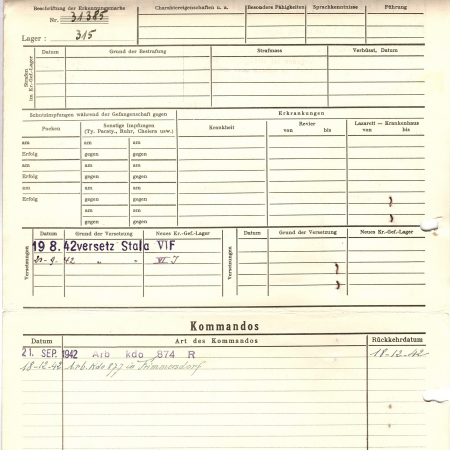 Beschriftung der Erkennungsmarke
Nr. 31385
Lager: 315
Charaktereigenschaften u. a.
Besondere Fähigkeiten
Sprachkenntnisse
Führung
Strafen im Kr.-Gef.-Lager
Datum Grund der Bestrafung Strafmass Verbüsst, Datum
Schutzimpfungen während der Gefangenschaft gegen Erkrankungen
Pocken Sonstige Impfungen Krankheit Revier Lazarett — Krankenhaus
(Ty. Paraty., Ruhr, Cholera usw.) von bis von bis
am am am
Erfolg gegen gegen
am am am
Erfolg gegen gegen
am am am
Erfolg gegen gegen
am am
gegen gegen
Versetzungen
Datum Grund der Versetzung Neues Kr.-Gef.-Lager
19 8.42 versetz Stala VIF
20-9-42 " " VI J
Versetzungen
Datum Grund der Versetzung Neues Kr.-Gef.-Lager
Kommandos
Datum Art des Kommandos Rückkehrdatum
21. SEP. 1942 Arb kdo 874 R 18-12-42
18-12-42 Arb. Kdo 877 in Frimmersdorf